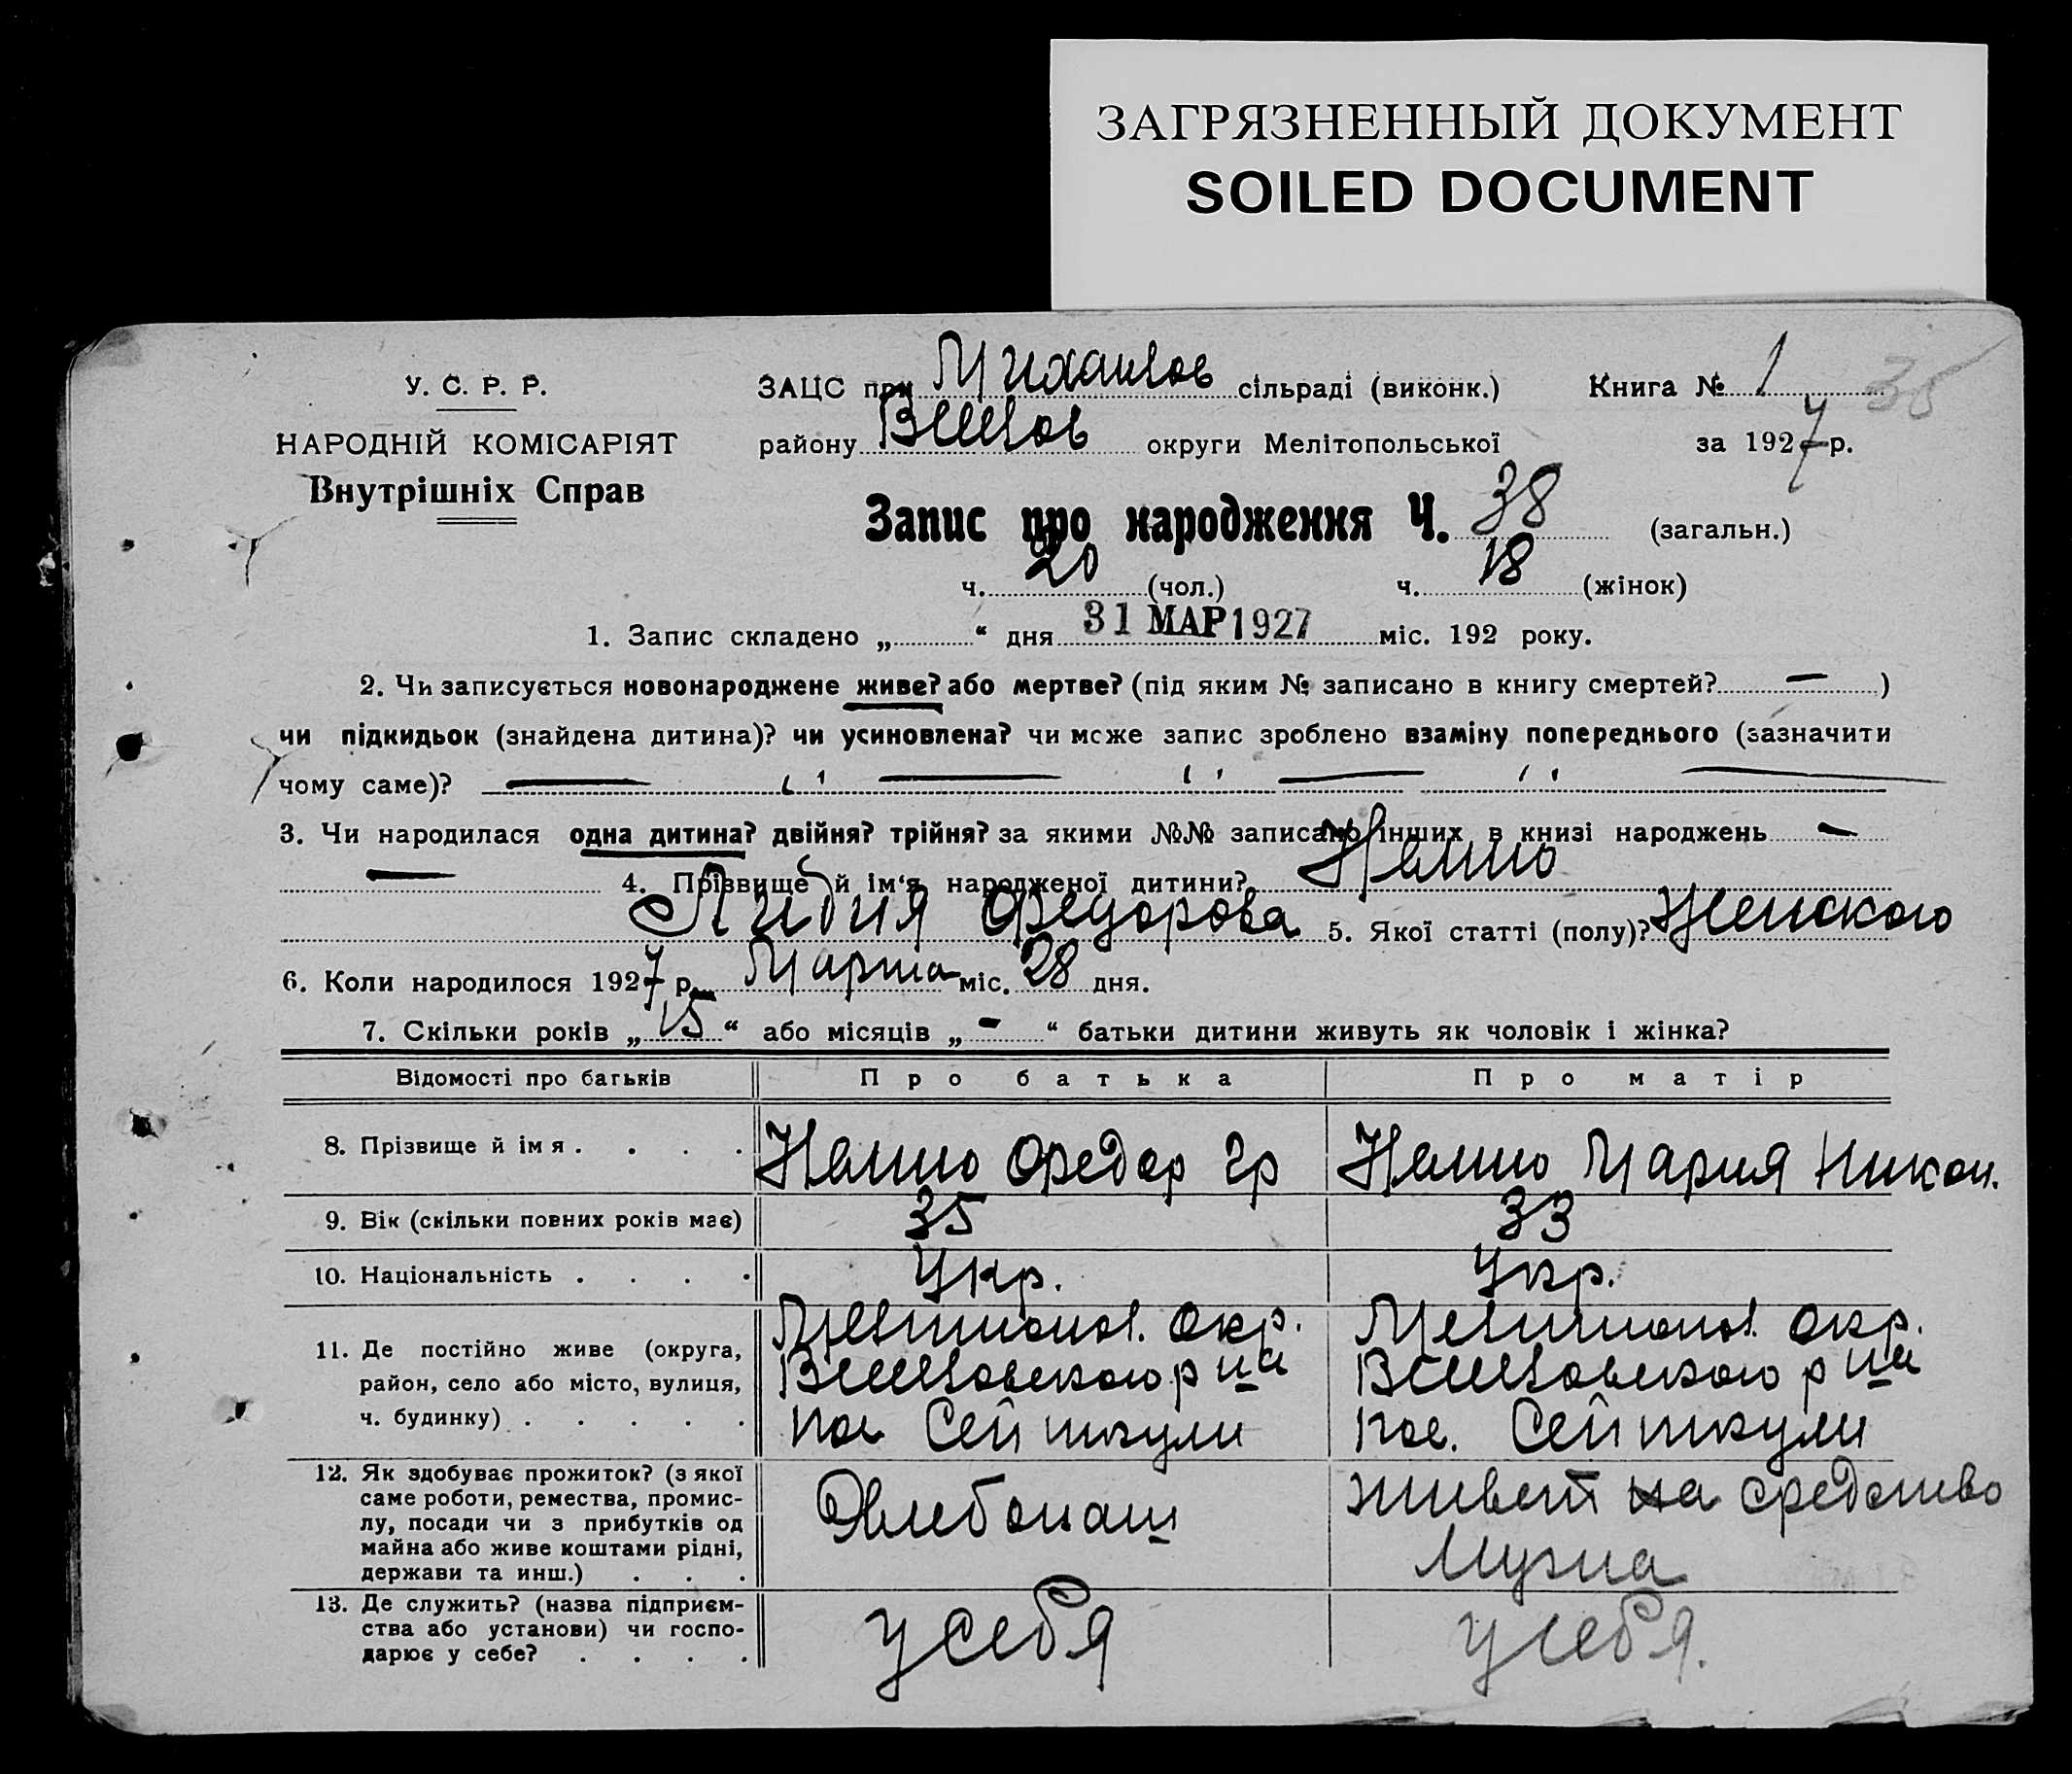 ЗАГРЯЗНЕННЫЙ ДОКУМЕНТ
SOILED DOCUMENT
У. С. Р. Р.
НАРОДНІЙ КОМІСАРІЯТ
Внутрішніх Справ
ЗАЦС при Михайлов сільраді (виконк.)
району Веселов округи Мелітопольської
Книга № 1 35
за 1927 р.
Запис про народження Ч. 38 (загальн.)
ч. 20 (чол.) ч. 18 (жінок)
1. Запис складено „ “ дня 31 МАР 1927 міс. 192 року.
2. Чи записується новонароджене живе? або мертве? (під яким № записано в книгу смертей? — )
чи підкидьок (знайдена дитина)? чи усиновлена? чи може запис зроблено взаміну попереднього (зазначити
чому саме)? — — — —
3. Чи народилася одна дитина? двійня? трійня? за якими №№ записано інших в книзі народжень —
— 4. Прізвище й ім‘я народженої дитини?
Лидия Федорова 5. Якої статті (полу)? Женского
6. Коли народилося 1927 р. Марта міс. 28 дня.
7. Скільки років „ 15 “ або місяців „ - “ батьки дитини живуть як чоловік і жінка?
Відомості про батьків Про батька Про матір
8. Прізвище й імя . . . . Федор Гр Мария Никол.
9. Вік (скільки повних років має) 35 33
10. Національність . . . . Укр. Укр.
11. Де постійно живе (округа,
район, село або місто, вулиця,
ч. будинку) . . . . .
Мелитопол. окр.
Веселовского р на
пос Сейткули
Мелитопол. окр.
Веселовского р на
пос. Сейткули
12. Як здобуває прожиток? (з якої
саме роботи, ремества, промис-
лу, посади чи з прибутків од
майна або живе коштами рідні,
держави та инш.) . . .
Хлебопаш
живет на средство
мужа
13. Де служить? (назва підприєм-
ства або установи) чи госпо-
дарює у себе? . . . .
у себя
у себя.